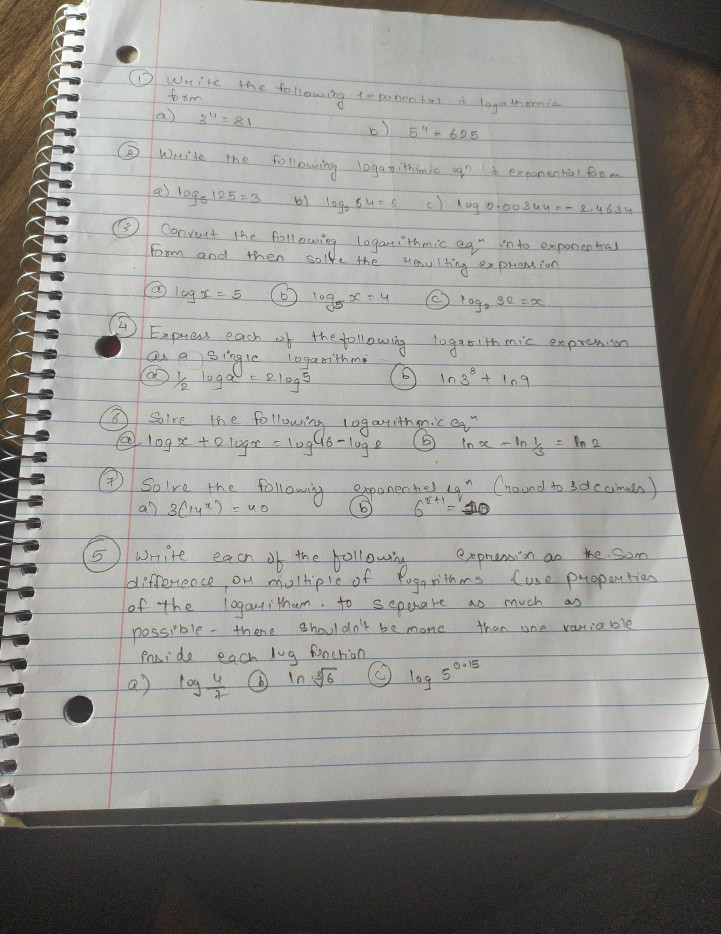 ① Write the following exponential in logathomic
form.
a) 3⁴ = 81 b.) 5⁴ = 625
② Write the following logarithimic eqⁿ in exponential form
a) log₅ 125 = 3 b) log₂ 64 = 6 c) log 0.00344 = - 2.4634
③ Convert the following logarithmic eqⁿ into exponential
form and then solve the resulting expression
ⓐ log x = 5 ⓑ log₅ x = 4 ⓒ log₂ 32 = x
④ Express each of the following logarithmic expression
as a single logarithms
ⓐ ½ log a = 2 log 5 ⓑ ln 3⁸ + ln 9
⑥ Solve the following logarithmic eqⁿ
ⓐ log x + 2 log x = log 46 - log 2 ⓑ ln x - ln ⅓ = ln 2
⑦ Solve the following exponential eqⁿ (round to 3 decimals)
a) 3(14ˣ) = 40 ⓑ 6ˣ⁺¹ = 10
⑤ Write each of the following expression as the Sum
difference, or multiple of lugarithms (use properties
of the logarithum. to seperate as much as
possible - there shouldn't be more than one variable
inside each lug function
a) log 4/7 ⓑ ln ∛6 ⓒ log 5⁰·¹⁵